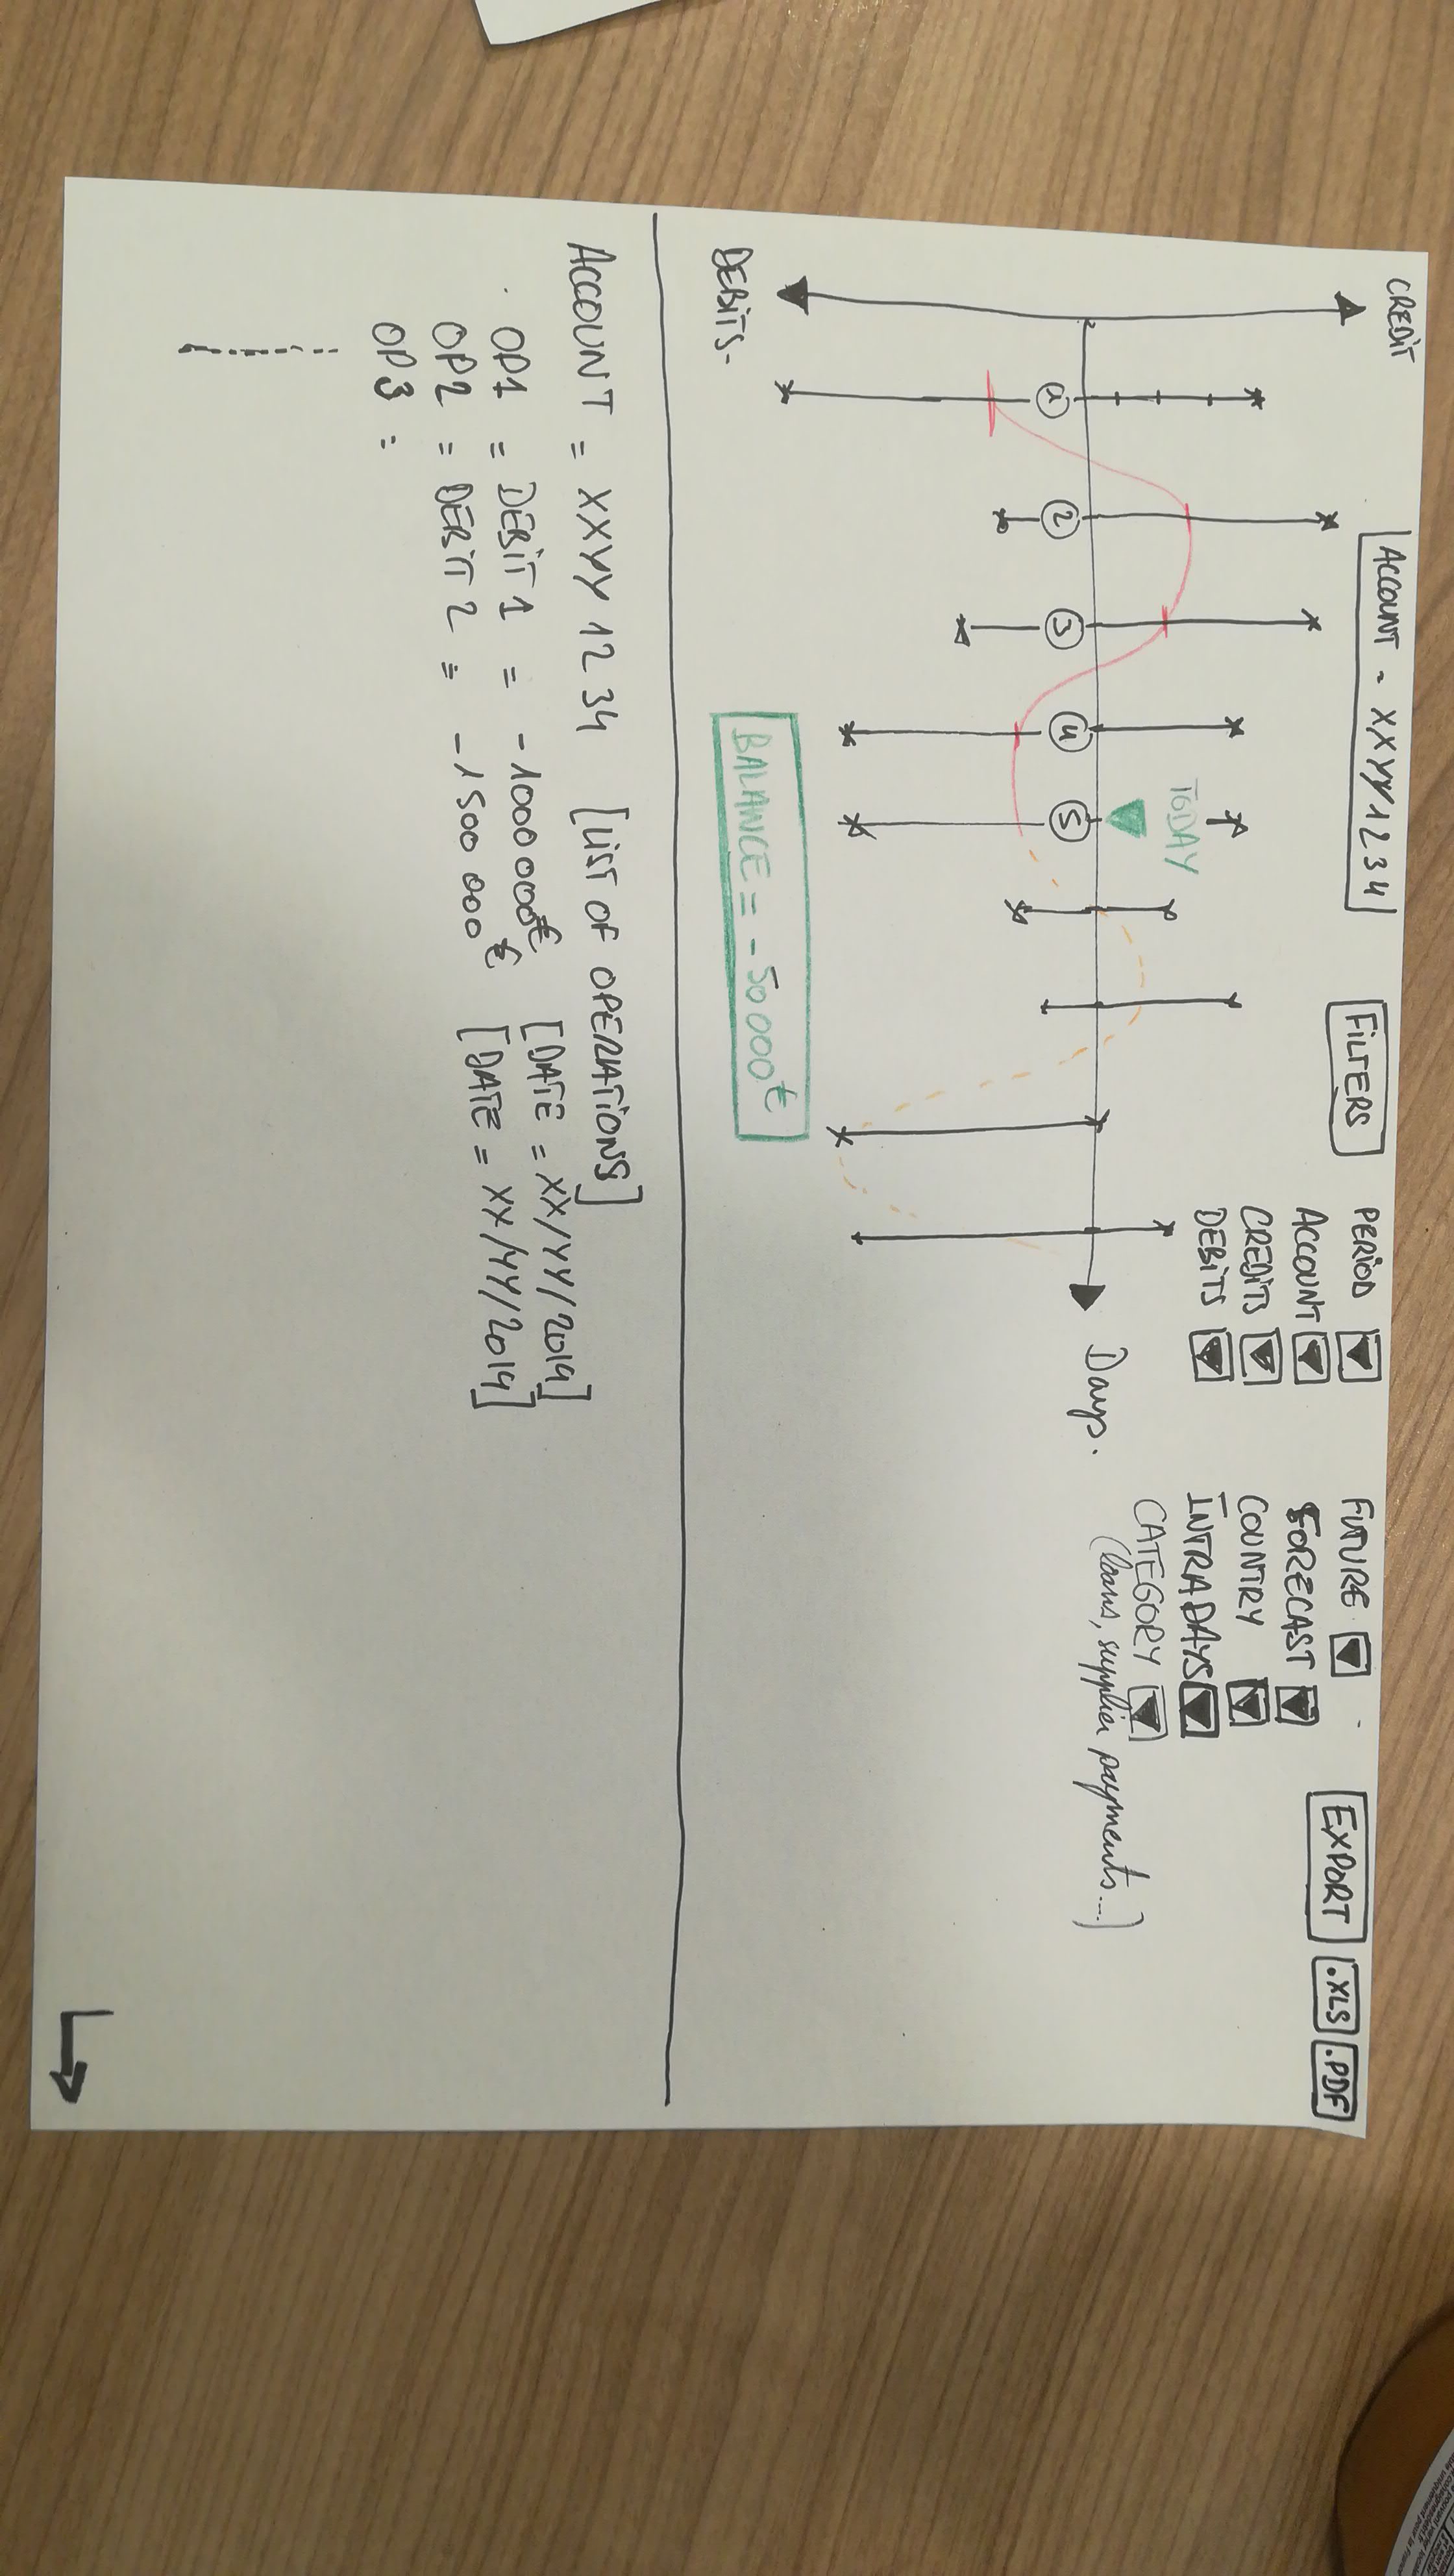 CREDIT
ACCOUNT - XXYY1234
FILTERS
PERIOD
ACCOUNT
CREDITS
DEBITS
FUTURE
FORECAST
COUNTRY
INTRADAYS
CATEGORY
(loans, supplier payments...)
EXPORT
.XLS
.PDF
TODAY
1
2
3
4
5
Days.
DEBITS-
BALANCE = - 50 000€
ACCOUNT = XXYY 12 34 [LIST OF OPERATIONS]
OP1 = DEBIT 1 = - 1000 000€ [DATE = XX/YY/2014]
OP2 = DEBIT 2 = - 1500 000€ [DATE = XX/YY/2014]
OP3 =